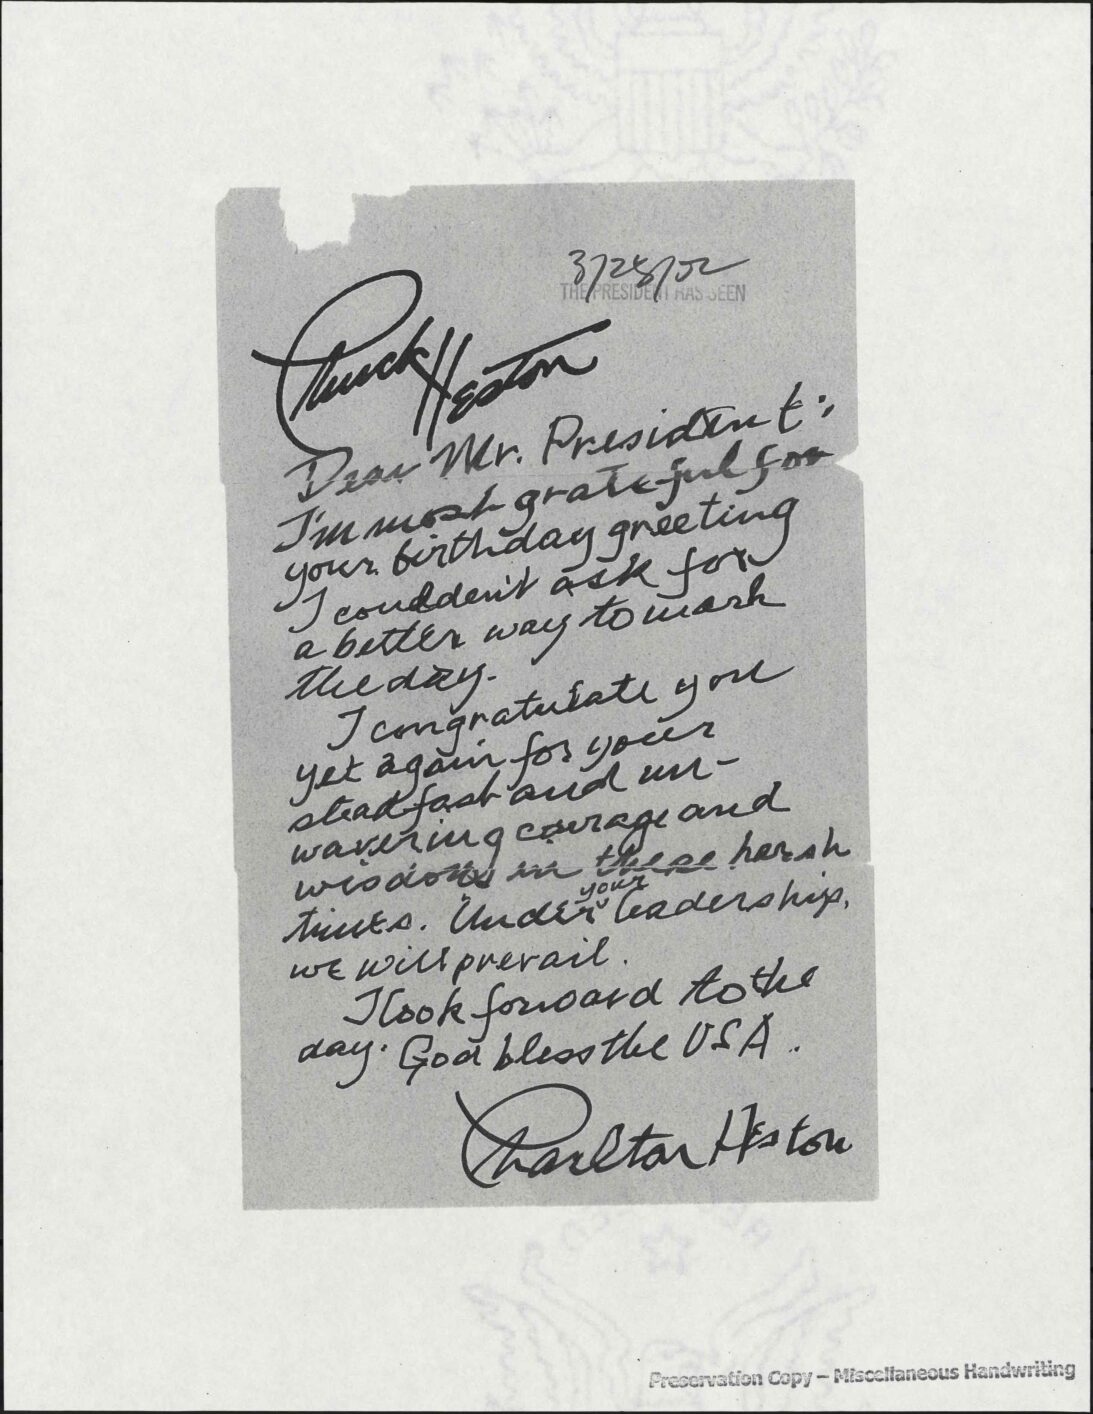 3/28/02
THE PRESIDENT HAS SEEN
Chuck Heston
Dear Mr. President:
I'm most grateful for
your birthday greeting
I couldn't ask for
a better way to mark
the day.
I congratulate you
yet again for your
steadfast and un-
wavering courage and
wisdom in these harsh
times. Under your leadership,
we will prevail.
I look forward to the
day. God bless the USA.
Charlton Heston
Preservation Copy – Miscellaneous Handwriting